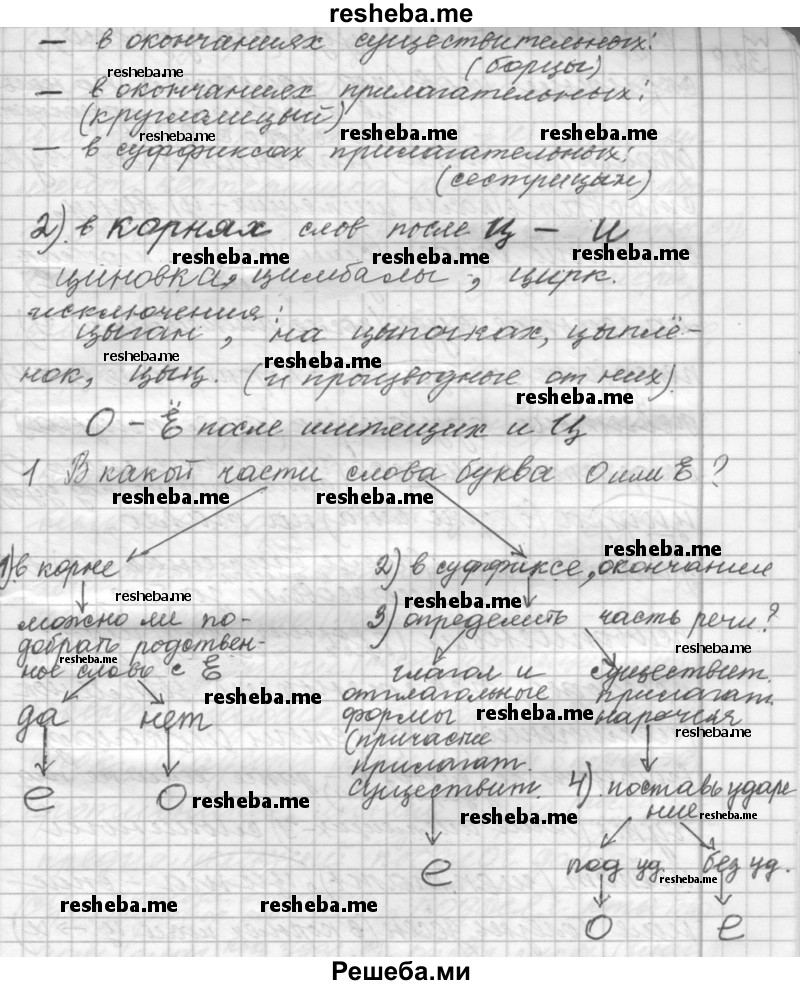 resheba.me
— в окончаниях существительных:
resheba.me (борцы)
— в окончаниях прилагательных:
(круглолицый) resheba.me resheba.me
resheba.me
— в суффиксах прилагательных:
(сестрицын)
2). в корнях слов после Ц — И
resheba.me resheba.me resheba.me
циновка, цимбалы, цирк.
исключения:
цыган, на цыпочках, цыплё-
resheba.me resheba.me
нок, цыц. (и производные от них).
resheba.me
О – Ё после шипящих и Ц
1 В какой части слова буква О или Ё ?
resheba.me resheba.me
resheba.me
1) в корне 2) в суффиксе, окончании
resheba.me resheba.me
можно ли по- 3) определить часть речи?
добрать родствен- resheba.me
resheba.me
ное слово с Ё глагол и существит.
resheba.me отглагольные прилагат.
да нет формы resheba.me наречия
(причастие resheba.me
прилагат.
е о resheba.me существит. 4) поставь ударе
resheba.me ние resheba.me
е под уд. без уд.
resheba.me
resheba.me resheba.me
о е
Решеба.ми